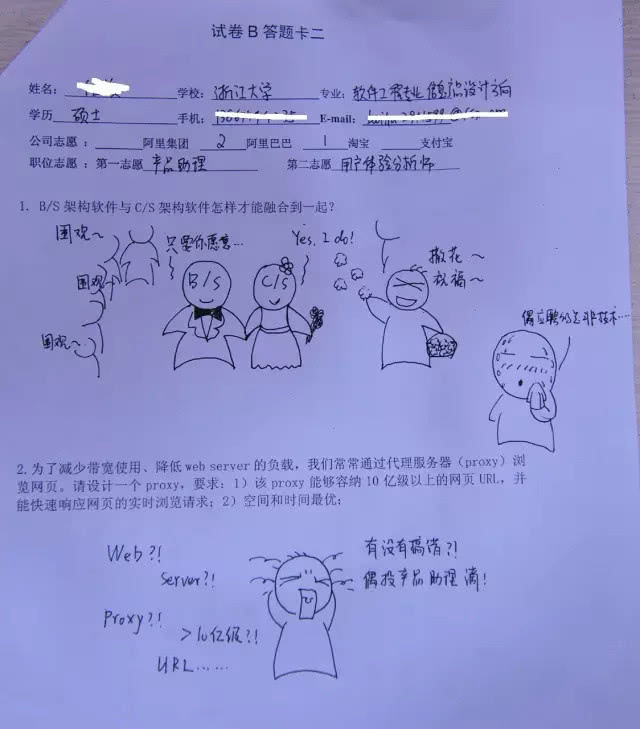 试卷B答题卡二
姓名： 学校：浙江大学 专业：软件工程专业信息产品设计方向
学历 硕士 手机： E-mail：
公司志愿： 阿里集团 2 阿里巴巴 1 淘宝 支付宝
职位志愿：第一志愿 产品助理 第二志愿 用户体验分析师
1. B/S架构软件与C/S架构软件怎样才能融合到一起？
围观～
围观～
围观～
只要你愿意...
Yes, I do!
B/S
C/S
撒花～
祝福～
偶应聘的是非技术...
2.为了减少带宽使用、降低web server的负载，我们常常通过代理服务器（proxy）浏
览网页。请设计一个proxy，要求：1）该proxy能够容纳10亿级以上的网页URL，并
能快速响应网页的实时浏览请求；2）空间和时间最优；
Web?!
Server?!
Proxy?!
>10亿级?!
URL......
有没有搞错?!
偶投产品助理滴!